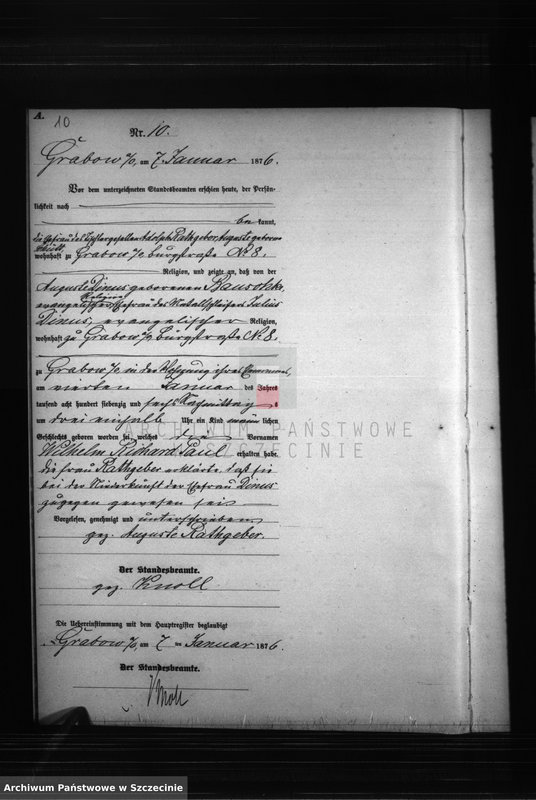 A.
10
Nr. 10.
Grabow a/O, am 7 Januar 1876.
Vor dem unterzeichneten Standesbeamten erschien heute, der Persön-
lichkeit nach
be kannt,
die Ehefrau des Tischlergesellen Adolph Rathgeber, Auguste geborene
wohnhaft zu Grabow a/O Burgstraße No 8.
Religion, und zeigte an, daß von der
Auguste Dinus geborenen
evangelischer Religion Ehefrau des Julius
Dinus, evangelischer Religion,
wohnhaft zu Grabow a/O Burgstraße No 8.
zu Grabow a/O in der Wohnung ihres Ehemannes,
am vierten Januar des Jahres
tausend acht hundert siebenzig und sechs Nachmittags
um drei einhalb Uhr ein Kind männ lichen
Geschlechts geboren worden sei, welches die Vornamen
Wilhelm Richard Paul erhalten habe.
Die Frau Rathgeber erklärte, daß sie
bei der Niederkunft der Ehefrau Dinus
zugegen gewesen sei
Vorgelesen, genehmigt und unterschrieben
gez. Auguste Rathgeber.
Der Standesbeamte.
gez. Knoll
Die Uebereinstimmung mit dem Hauptregister beglaubigt
Grabow a/O, am 7 ten Januar 1876.
Der Standesbeamte.
Knoll
ARCHIWUM PAŃSTWOWE
W SZCZECINIE
Archiwum Państwowe w Szczecinie